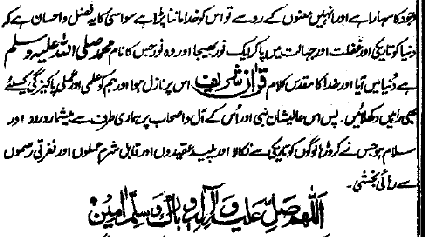 وجود کا سہارا ہے اور انہیں معنوں کے رو سے تو اس کو خدا ماننا پڑتا ہے سو اسی کا یہ فضل و احسان ہے کہ
دنیا کو تاریکی اور غفلت اور جہالت میں پا کر ایک نور بھیجا اور وہ نور جس کا نام محمد صلی اللہ علیہ وسلم
ہے دنیا میں آیا اور خدا کا مقدس کلام قرآن شریف اس پر نازل ہوا اور ہم کو علمی اور عملی پاکیزگی کیلئے
راہیں دکھلائیں۔ پس اس عالیشان نبی اور اُس کے آل و اصحاب پر ہماری طرف سے بیشمار درود اور
سلام ہو جس نے کروڑہا لوگوں کو تاریکی سے نکالا اور پلید عقیدوں اور قابل شرم عملوں اور نفرتی رسموں
سے رہائی بخشی۔
اللّٰھم صلّ علیہ واٰلہ وبارک وسلّم اٰمین